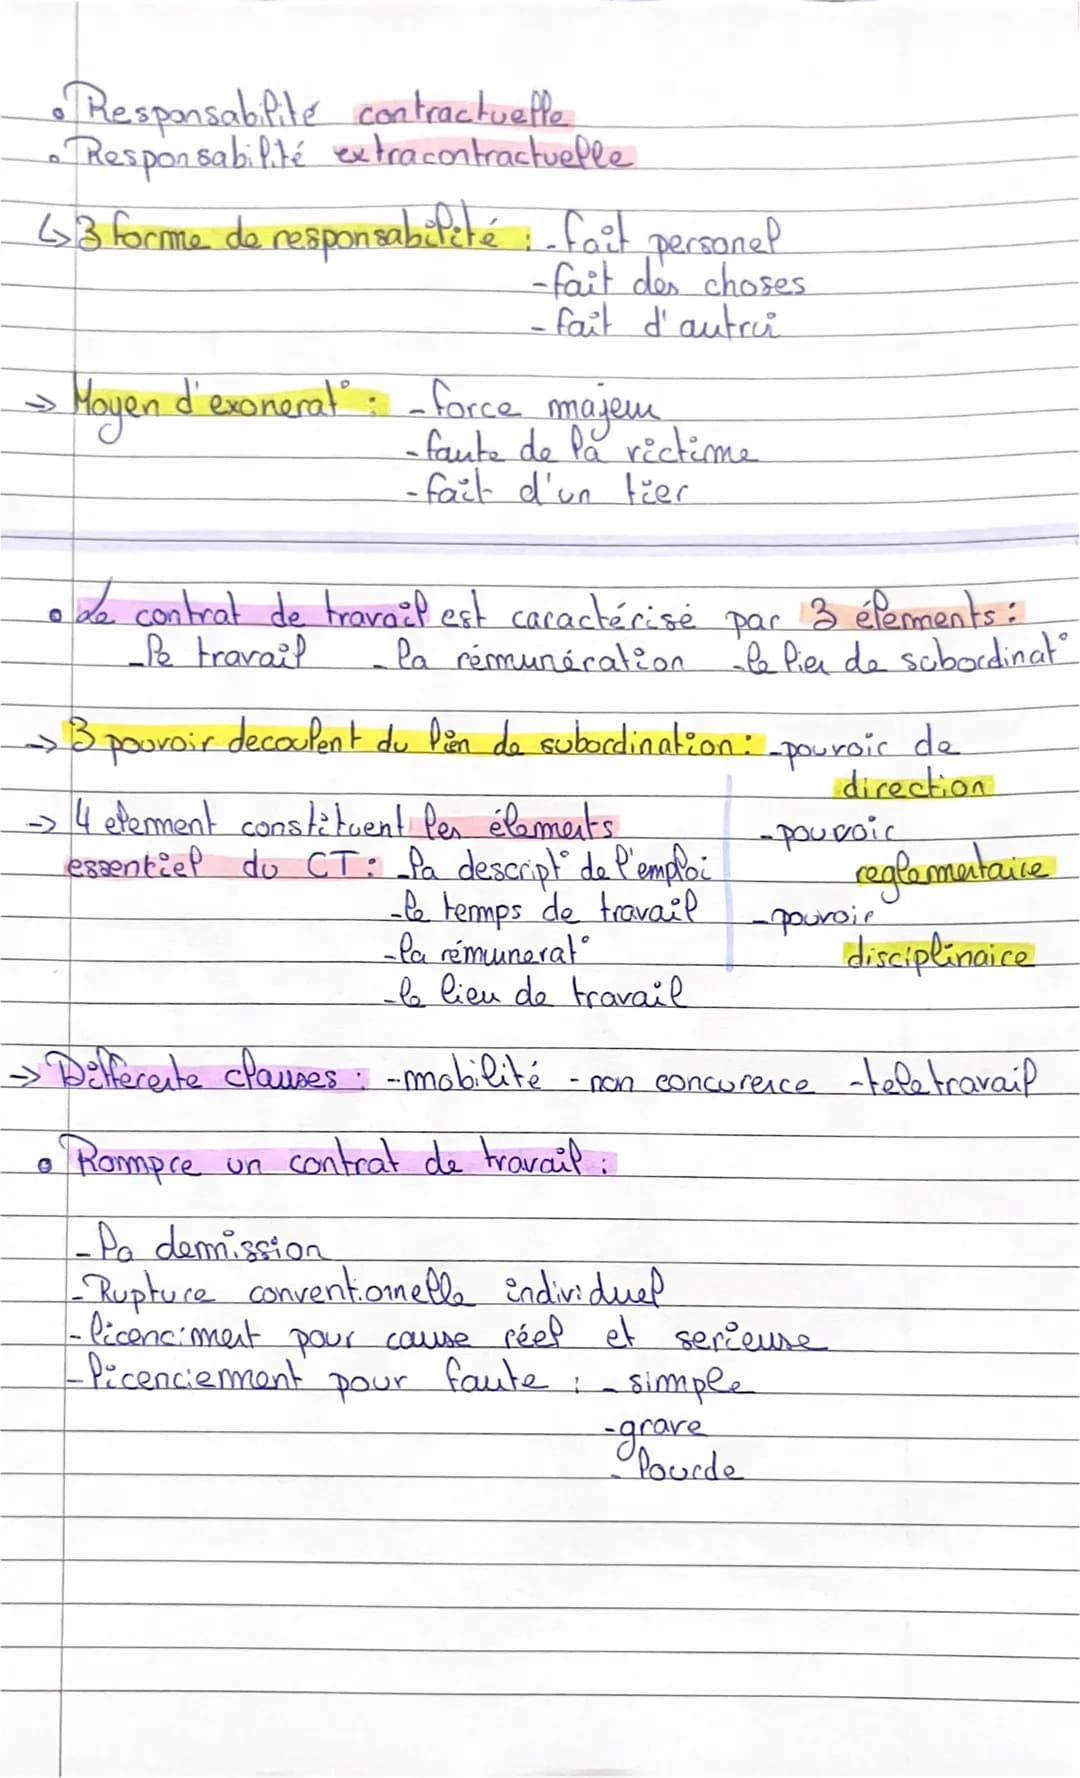 • Responsabilité contractuelle
• Responsabilité extracontractuelle
↳ 3 forme de responsabilité : - fait personel
- fait des choses
- fait d'autrui
→ Moyen d'exonerat° : - force majeur
- faute de la victime
- fait d'un tier
• Le contrat de travail est caractérisé par 3 élements :
- le travail - la rémunération - le lien de subordinat°
→ 3 pouvoir decoulent du lien de subordination : - pouvoir de
direction
→ 4 element constituent les élements
- pouvoir
essentiel du CT : - la descript° de l'emploi
reglementaire
- le temps de travail
- pouvoir
- la rémunerat°
disciplinaire
- le lieu de travail
→ Differente clauses : - mobilité - non concurence - teletravail
• Rompre un contrat de travail :
- la demission
- Rupture conventionnelle individuel
- licenciment pour cause réel et serieuse
- licenciement pour faute : - simple
- grave
- lourde